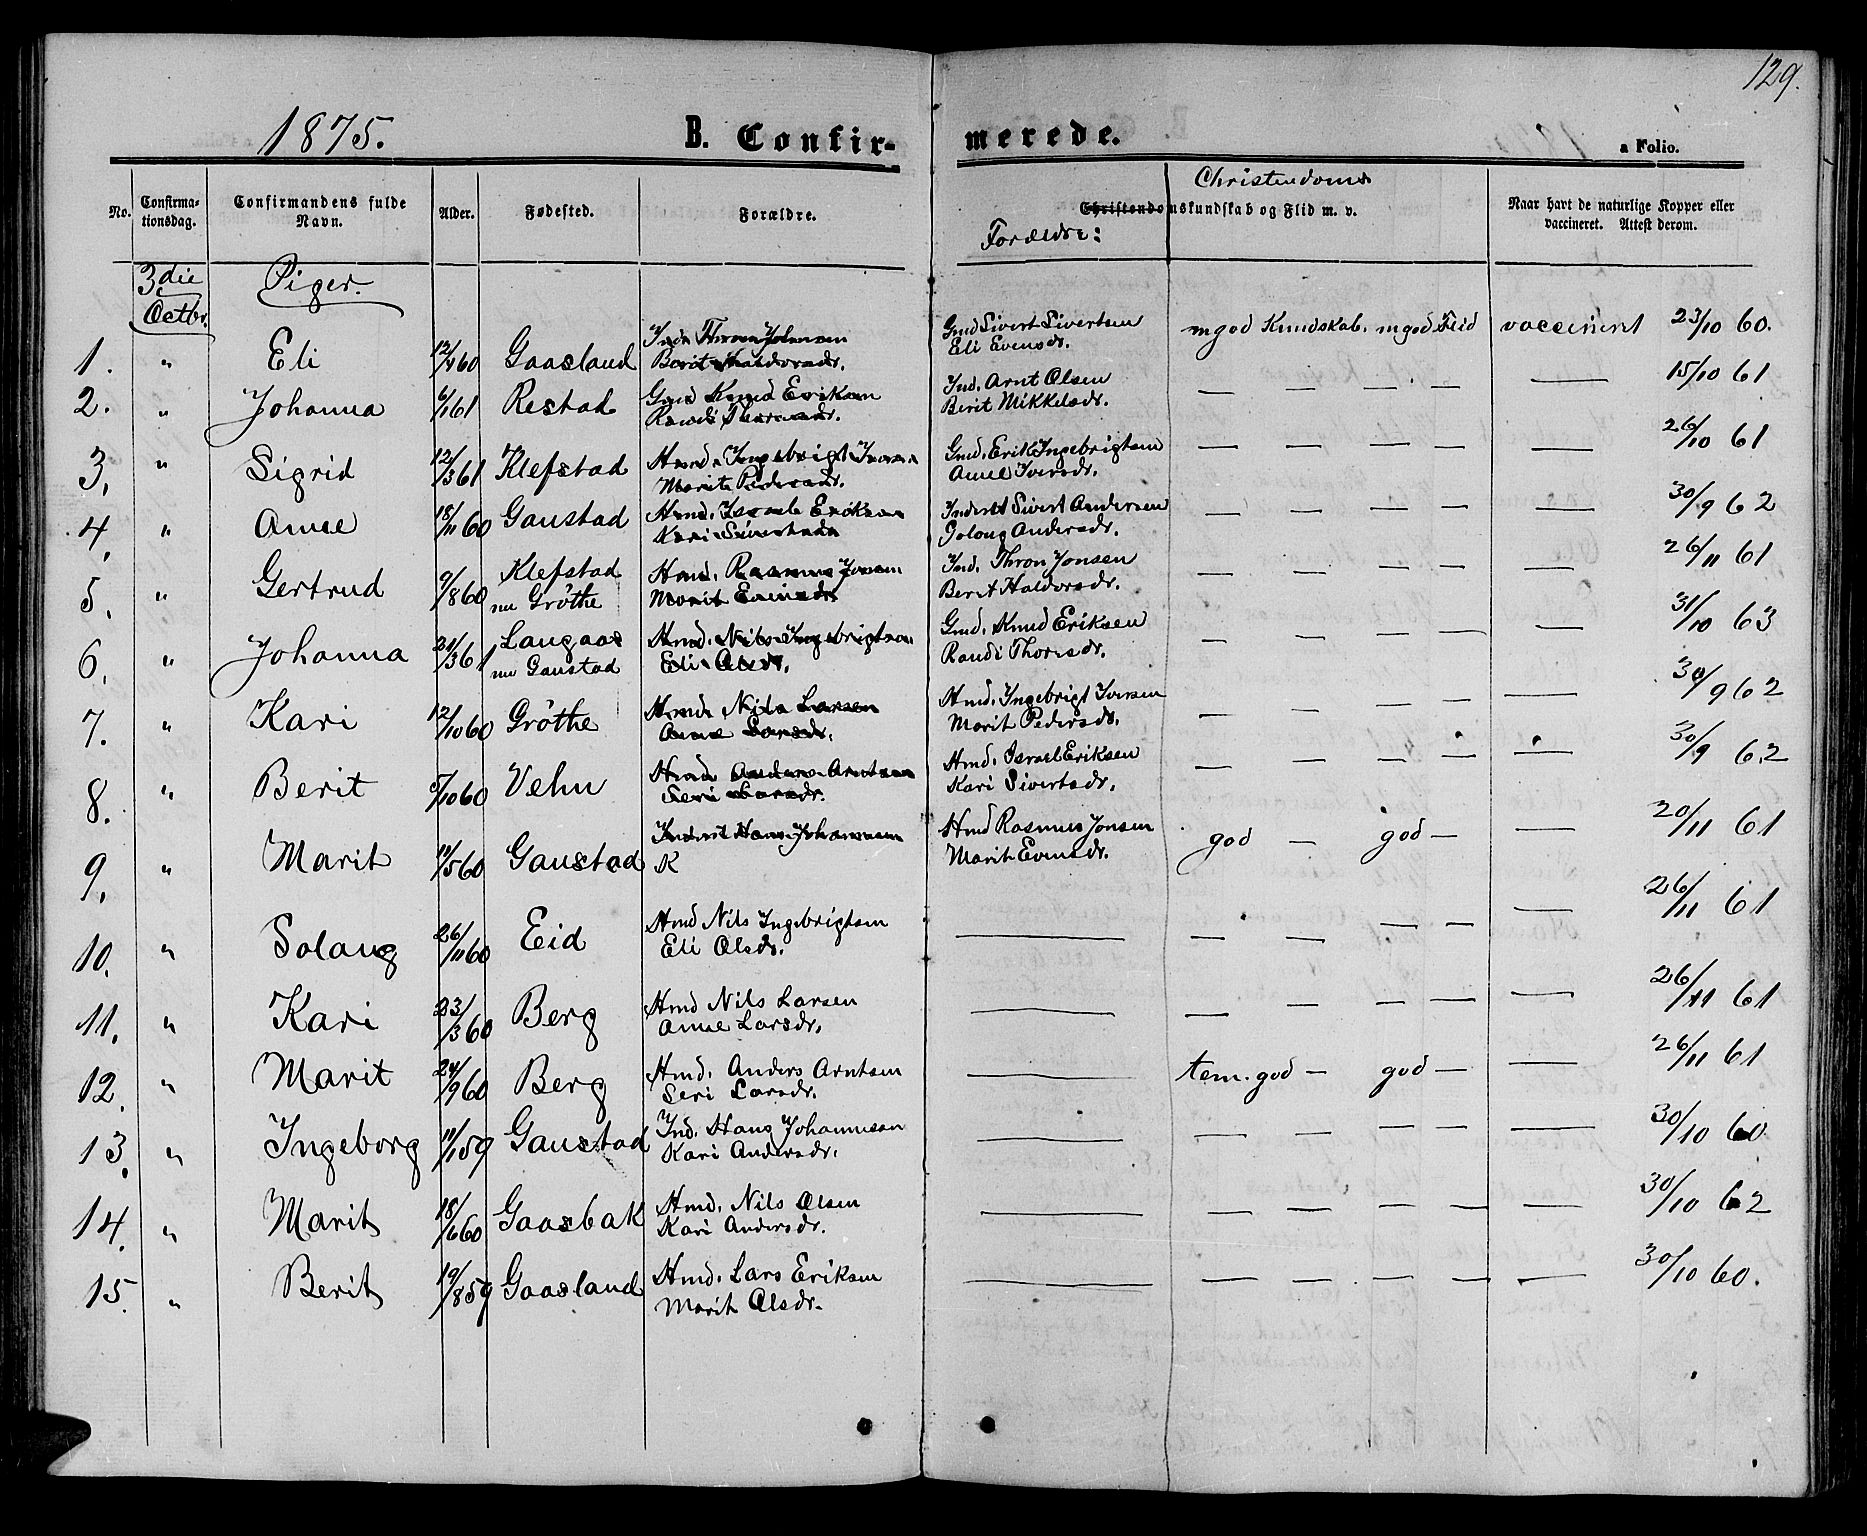 129.
1875. B. Confirmerede. a Folio.
No. Confirmationsdag. Confirmandens fulde Navn. Alder. Fødested. Forældre. Forældre: Christendoms Christendomskundskab og Flid m. v. Naar havt de naturlige Kopper eller vaccineret. Attest derom.
3die Octbr. Piger.
1. " Eli 12/4 60 Gaasland Ind. Thron Johnsen Berit Haldorsdr. Gmd Sivert Sivertsen Eli Evensdr. mgod Kundskab. mgod Flid vaccineret 23/10 60.
2. " Johanna 6/1 61 Restad Gmd Knud Eriksen Randi Thoresdr. Ind. Arnt Olsen Berit Mikkelsdr. — — — — — 15/10 61
3. " Sigrid 12/3 61 Klefstad Hmd. Ingebrigt Iversen Marit Pedersdr. Gmd. Erik Ingebrigtsen Anne Iversdr. — — — — — 26/10 61
4. " Anne 18/11 60 Gaustad Hmd. Israel Eriksen Kari Sivertsdr Inderst Sivert Andersen Soloug Andersdr. — — — — — 30/9 62
5. " Gertrud 9/8 60 Klefstad nu Gröthe Hmd. Rasmus Jonsen Marit Evensdr. Ind. Thron Jonsen Berit Haldorsdr. — — — — — 26/11 61
6. " Johanna 21/3 61 Langaas nu Gaustad Hmd. Nils Ingebrigtsen Eli Olsdr. Gmd. Knud Eriksen Randi Thoresdr. — — — — — 31/10 63
7. " Kari 12/10 60 Gröthe Hmd. Nils Larsen Anne Larsdr. Hmd. Ingebrigt Iversen Marit Pedersdr. — — — — — 30/9 62
8. " Berit 5/10 60 Vehn Hmd Anders Arntsen Seri Larsdr. Hmd. Israel Eriksen Kari Sivertsdr. — — — — — 30/9 62
9. " Marit 11/5 60 Gaustad Inderst Hans Johannesen K Hmd Rasmus Jonsen Marit Evensdr. god — god — — 20/11 61
10. " Solaug 26/11 60 Eid Hmd Nils Ingebrigtsen Eli Olsdr. — — — — — — 26/11 61
11. " Kari 23/3 60 Berg Hmd Nils Larsen Anne Larsdr. — — — — — — 26/11 61
12. " Marit 24/9 60 Berg Hmd. Anders Arntsen Seri Larsdr. — tem. god — god — — 26/11 61
13. " Ingeborg 11/1 59 Gaustad Ind. Hans Johannesen Kari Andersdr. — — — — — — 30/10 60
14. " Marit 18/6 60 Gaasbak Hmd. Nils Olsen Kari Andersdr. — — — — — — 30/10 62
15. " Berit 19/8 59 Gaasland Hmd. Lars Eriksen Marit Olsdr. — — — — — — 30/10 60.